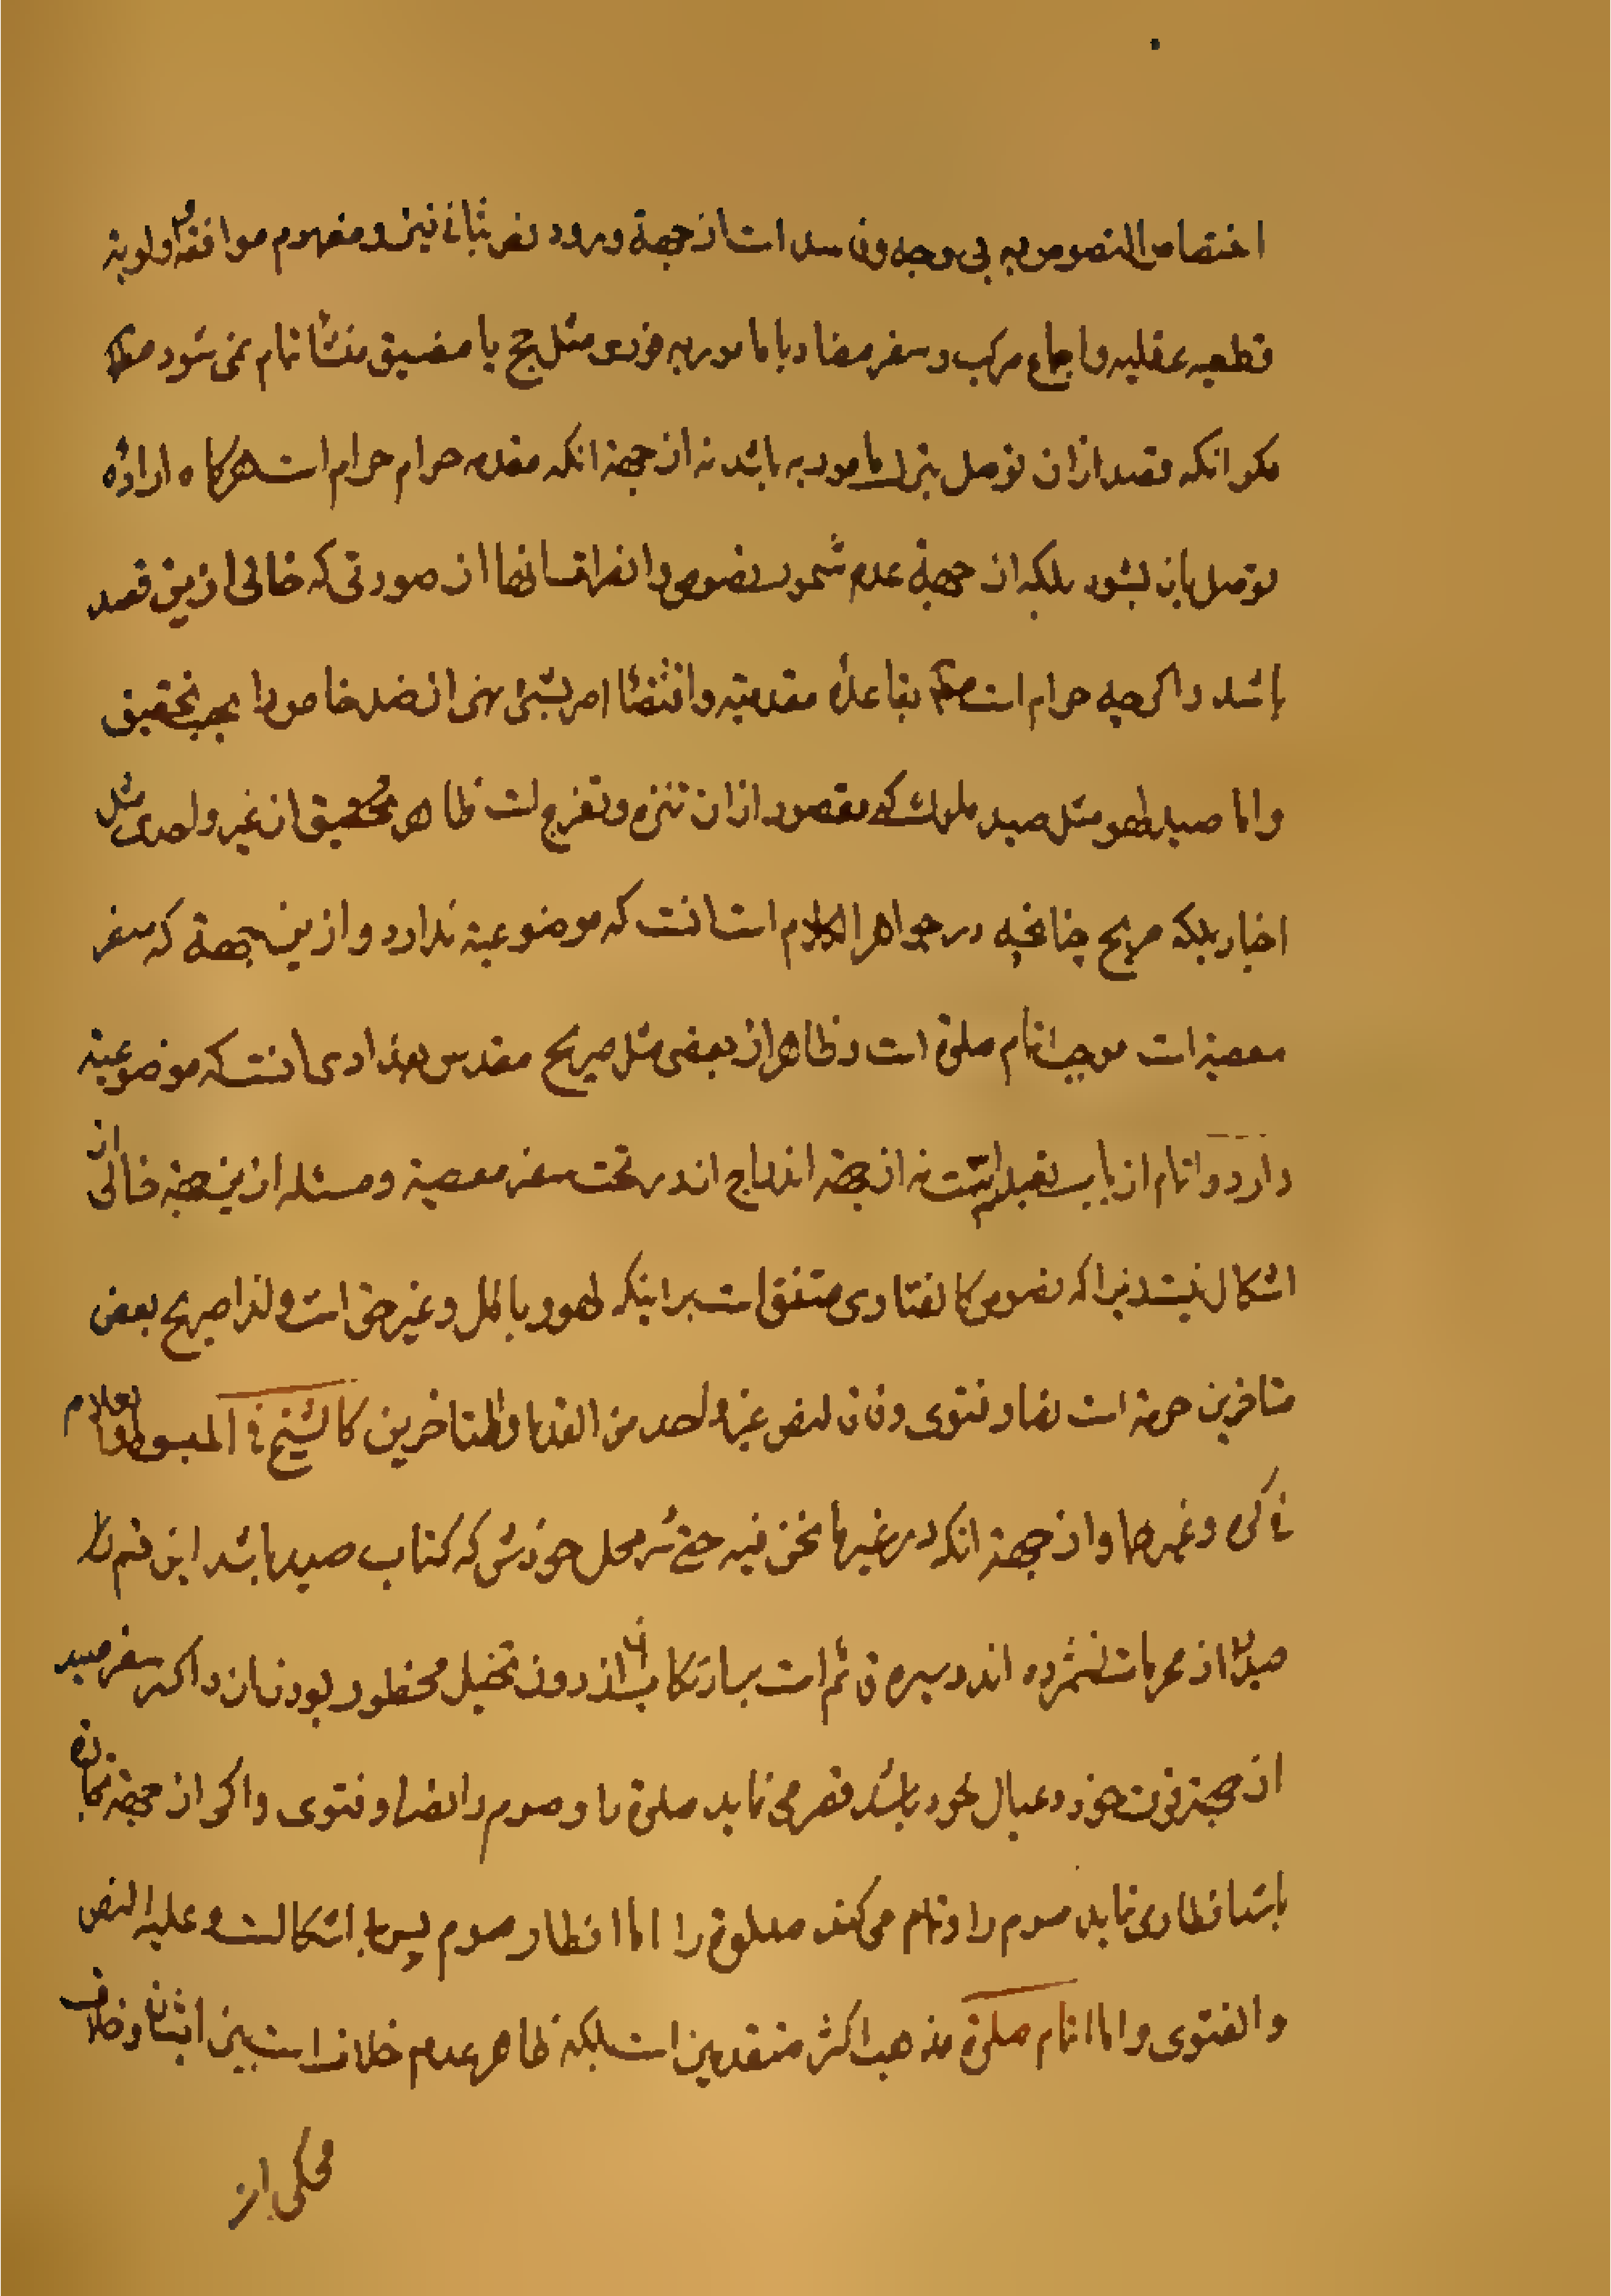 اختصاص النصوص به بی وجه و فاسد است از جهة ورود نص بثانی نیز و مفهوم موافقه و اولویة
قطعیه عقلیه و اجماع مرکب و سفر مضاد با مامور به فوری مثل حج یا مضیق منشأ تمام نمی شود
مگر آنکه قصد از آن توصل بترک مامور به باشد نه از جهة آنکه مقدمه حرام حرام است هرگاه اراده
توصل بآن بشود بلکه از جهة عدم شمول نصوص و انصراف آنها از صورتی که خالی ازین قصد
باشد و اگرچه حرام است بقاعدهٔ مقدمیّه و اقتضاء امر بشیئ نهی از ضد خاص را بحسب تحقیق
و اما صید لهو مثل صید ملوک که مقصود از آن تنزه و تفرج است ظاهر محکی از غیر واحدی مثل
اخبار بلکه صریح چنانچه در جواهر الکلام است آنست که موضوعیة ندارد و ازین جهة که سفر
معصیة است موجب اتمام صلوة است و ظاهر از بعضی مثل صریح مقدس بغدادی آنست که موضوعیة
دارد و اتمام از باب تعبد است نه از جهة اندراج اندر تحت سفر معصیة و مسئله ازین جهة خالی از
اشکال نیست زیرا که نصوص کالفتاوی متفق است بر اینکه لهو و باطل و غیر حق است و لذا صریح بعض
متأخرین حرمة است نصا و فتوی وفاقا لنص غیر واحد من القدما و المتأخرین کالشیخ فی المبسوط و العلام
فی کری و غیرهما و از جهة آنکه در غیر ما نحن فیه حتی در محل خودش که کتاب صید باشد این قسم از
صید را از محرمات نشمرده اند و سیره قائم است بر ارتکاب آن بدون تخیل محظور بودن آن و اگر سفر صید
از جهة قوت خود و عیال خود باشد قصر می نماید صلوة را و صوم را نصا و فتوی و اگر از جهة تجارة
باشد افطار می نماید صوم را و تمام می کند صلوة را اما افطار صوم پس بلا اشکال است و علیه النص
و الفتوی و اما اتمام صلوة مذهب اکثر متقدمین است بلکه ظاهر عدم خلاف است بین ایشان و خلاف
محکی از